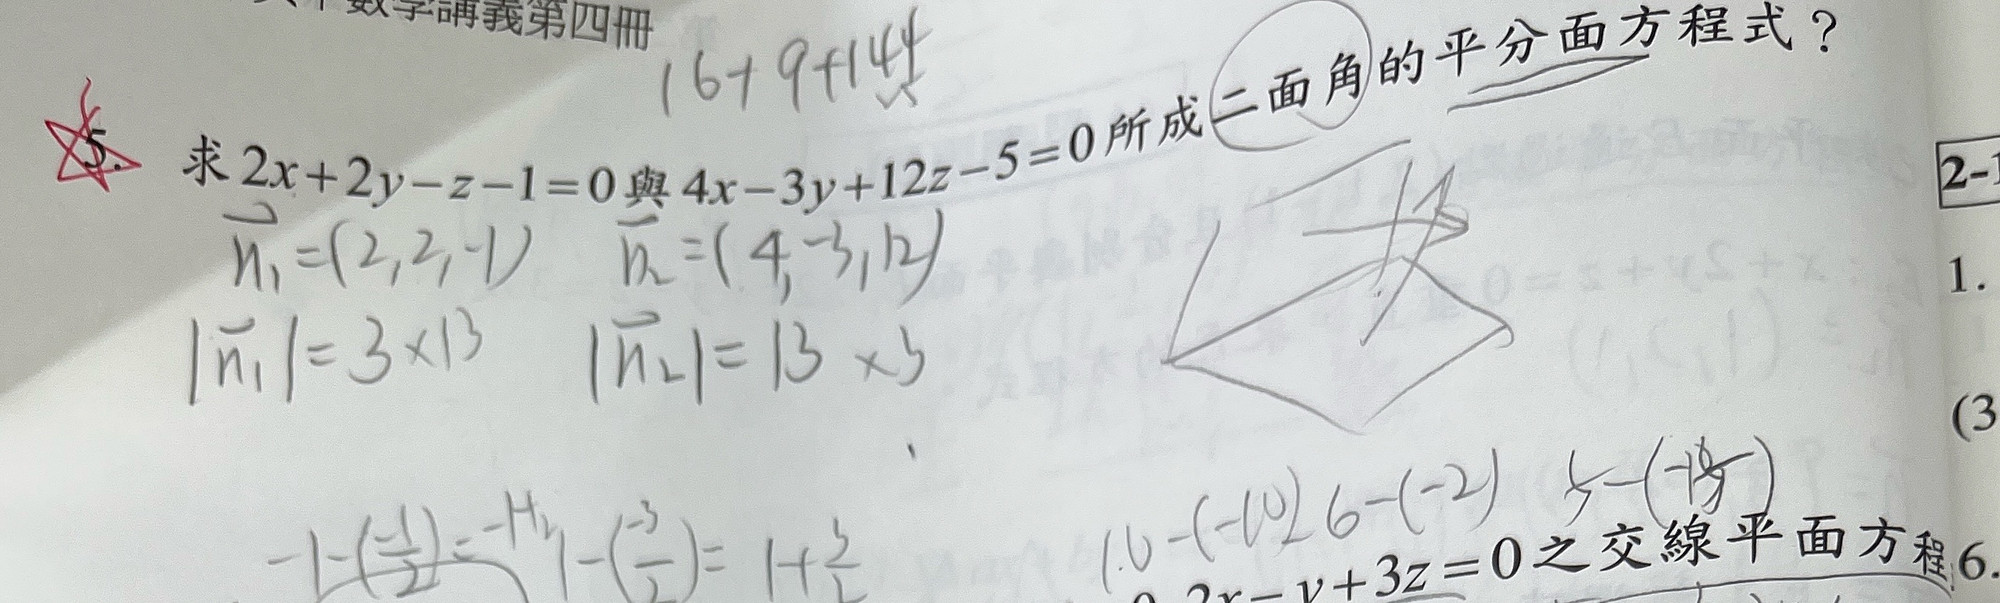 數學講義第四冊
16+9+144
5. 求 2x+2y−z−1=0 與 4x−3y+12z−5=0 所成二面角的平分面方程式？
n₁=(2,2,-1) n₂=(4,-3,12)
|n₁|=3×13 |n₂|=13×3
2-1
1.
(3
10-(-10) 6-(-2)
-1-(-1/2)= 1-(-3/2)=1+3/2
2x−y+3z=0之交線平面方程
6.